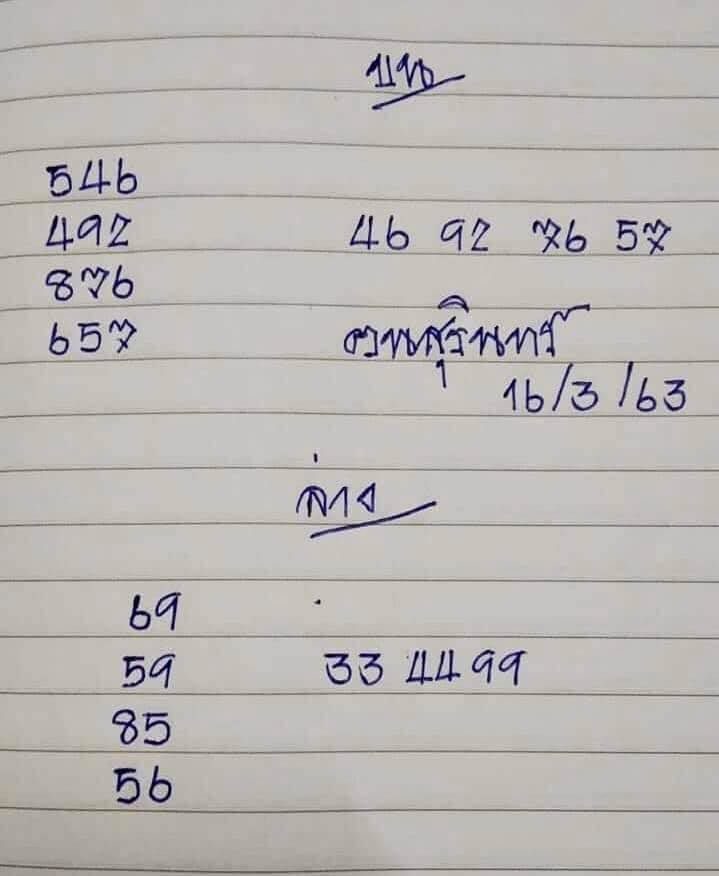 บน
546
492 46 92 76 57
876
657 ควนสุรินทร์
16/3/63
ล่าง
69
59 33 44 99
85
56